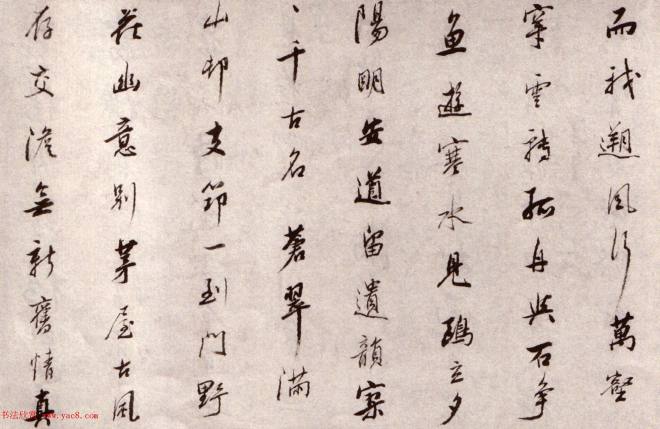 而我遡風行萬壑
穿雲轉孤舟與石争
魚遊寒水見鷗立夕
陽明安道留遺韻寥
〻千古名 蒼翠滿
山邨支筇一到門野
花幽意別茅屋古風
存交澹無新舊情真
书法欣赏 www.yac8.com